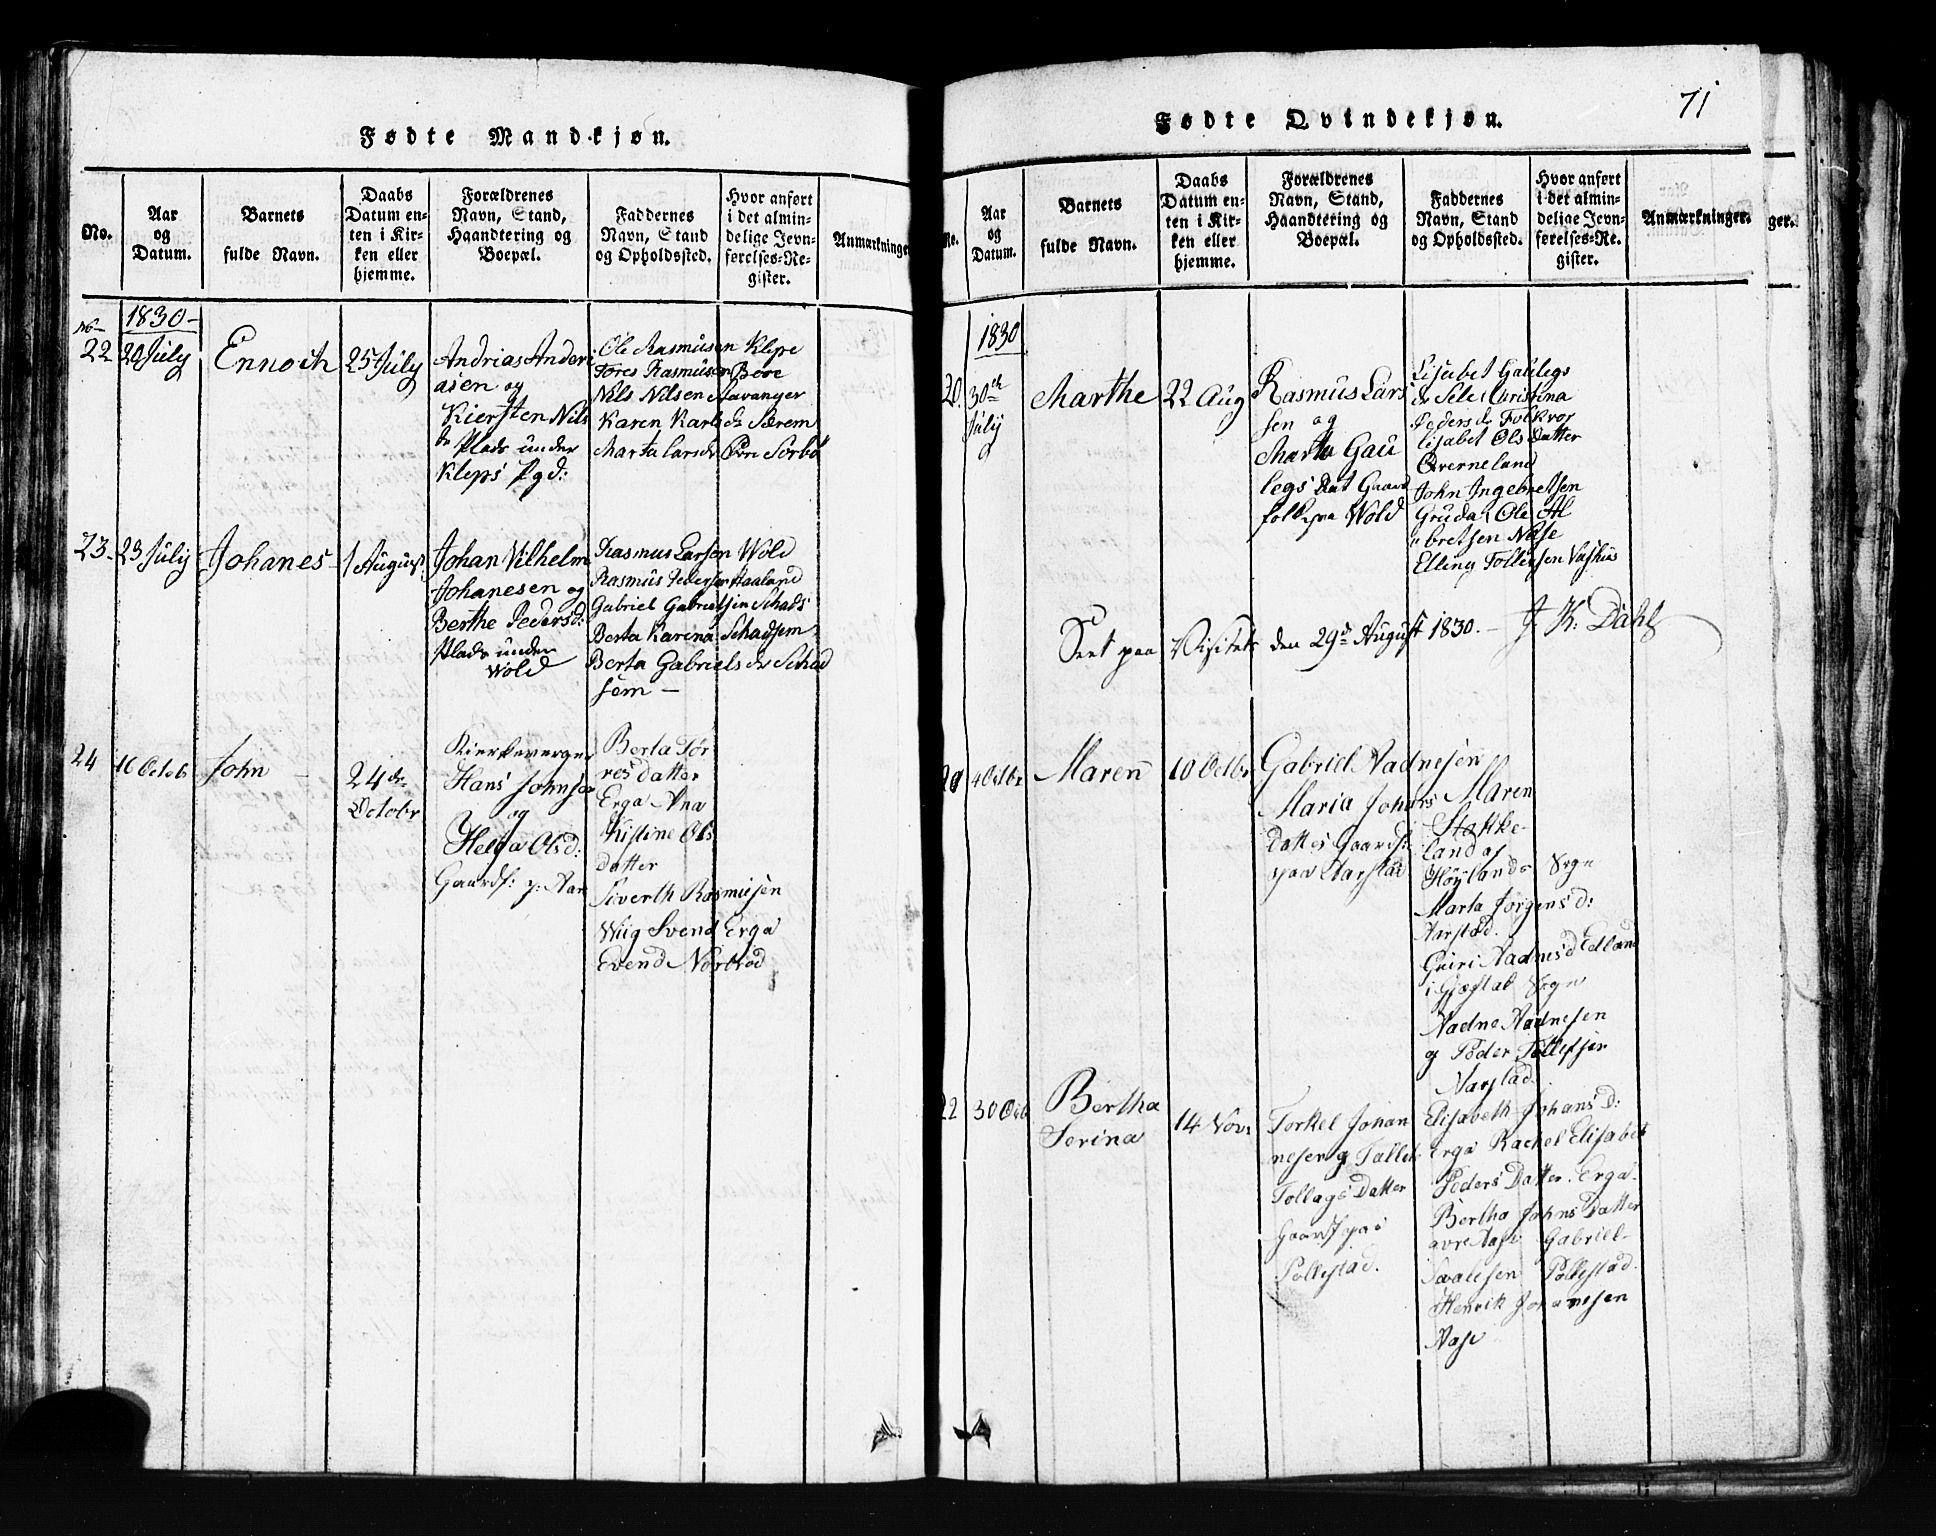 Fødte Mandkjøn.
No.
Aar
og
Datum.
Barnets
fulde Navn.
Daabs
Datum en-
ten i Kir-
ken eller
hjemme.
Forældrenes
Navn, Stand,
Haandtering og
Boepæl.
Faddernes
Navn, Stand
og Opholdssted.
Hvor anført
i det almin-
delige Jevn-
førelses-Re-
gister.
Anmærkninger
1830
22
20 July
Ennoch
25 July
Andrias Andri
asen og
Kiersten Nils
dr Plads under
Kleps Pgd:
Ole Rasmusen Klepe
Tores Rasmusen Bore
Nils Nilsen Stavanger
Karen Karls dr Særem
Marta Larsdr Øvre Sørbø
23
23 July
Johanes
1 August
Johan Vilhelm
Johanesen og
Berthe Pedersd:
Plads under
Wold
Rasmus Larsen Wold
Rasmus Pedersen
Gabriel Gabrielsen Schads
Berta Karina Schadsem
Berta Gabriels dr Schad
sem
24
16 Octob
John
24de
Octobr
Kierkeverger
Hans Johnsen
og
Helga Olsd:
Gaardf: p: Aar
Berta Tør
resdatter
Erga Ana
Kistine Ols
datter
Siverth Rasmusen
Wiig Svend Erga
Svend Nørbrød
71
Fødte Qvindekjøn.
No.
Aar
og
Datum.
Barnets
fulde Navn.
Daabs
Datum en-
ten i Kir-
ken eller
hjemme.
Forældrenes
Navn, Stand,
Haandtering og
Boepæl.
Faddernes
Navn, Stand
og Opholdssted.
Hvor anført
i det almin-
delige Jevn-
førelses-Re-
gister.
Anmærkninger.
ger.
1830
20.
30th
July
Marthe
22 Aug
Rasmus Lars
sen og
Marta Gau
legs Dat Gaard
folk paa Wold
Lisabet Gaulegs
dr Sele Christina
Pedersdr Folkvor
Lisabet Ols Datter
Øverneland
John Ingebretsen
Gruda Ole Al
bretsen Nase
Elling Tollefsen
Seet paa Visitats den 29d August 1830. J. K. Dahl
21
4 Octbr
Maren
10 Octbr
Gabriel Aadnesen
Maria Johans
Datter Gaardf:
paa Aarstad
Maren
Stokke-
land af
Høylands Sogn
Marta Jørgensd:
Aarstad.
Guri Aadnesd Edland
i Gjestad Sogn
Aadne Aadnesen
og Peder Tollefsen
Aarstad
22
30 Octb
Bertha
Serina
14 Novr
Torkel Johan
nesen og
Tollags Datter
Gaardf paa
Pollestad.
Elisabeth Johansd:
Erga Rachel Elisabet
Peders Datter Erga
Bertha Johns Datter
Gabriel
Svalesen Pollestad.
Henrik Johannesen
Aase